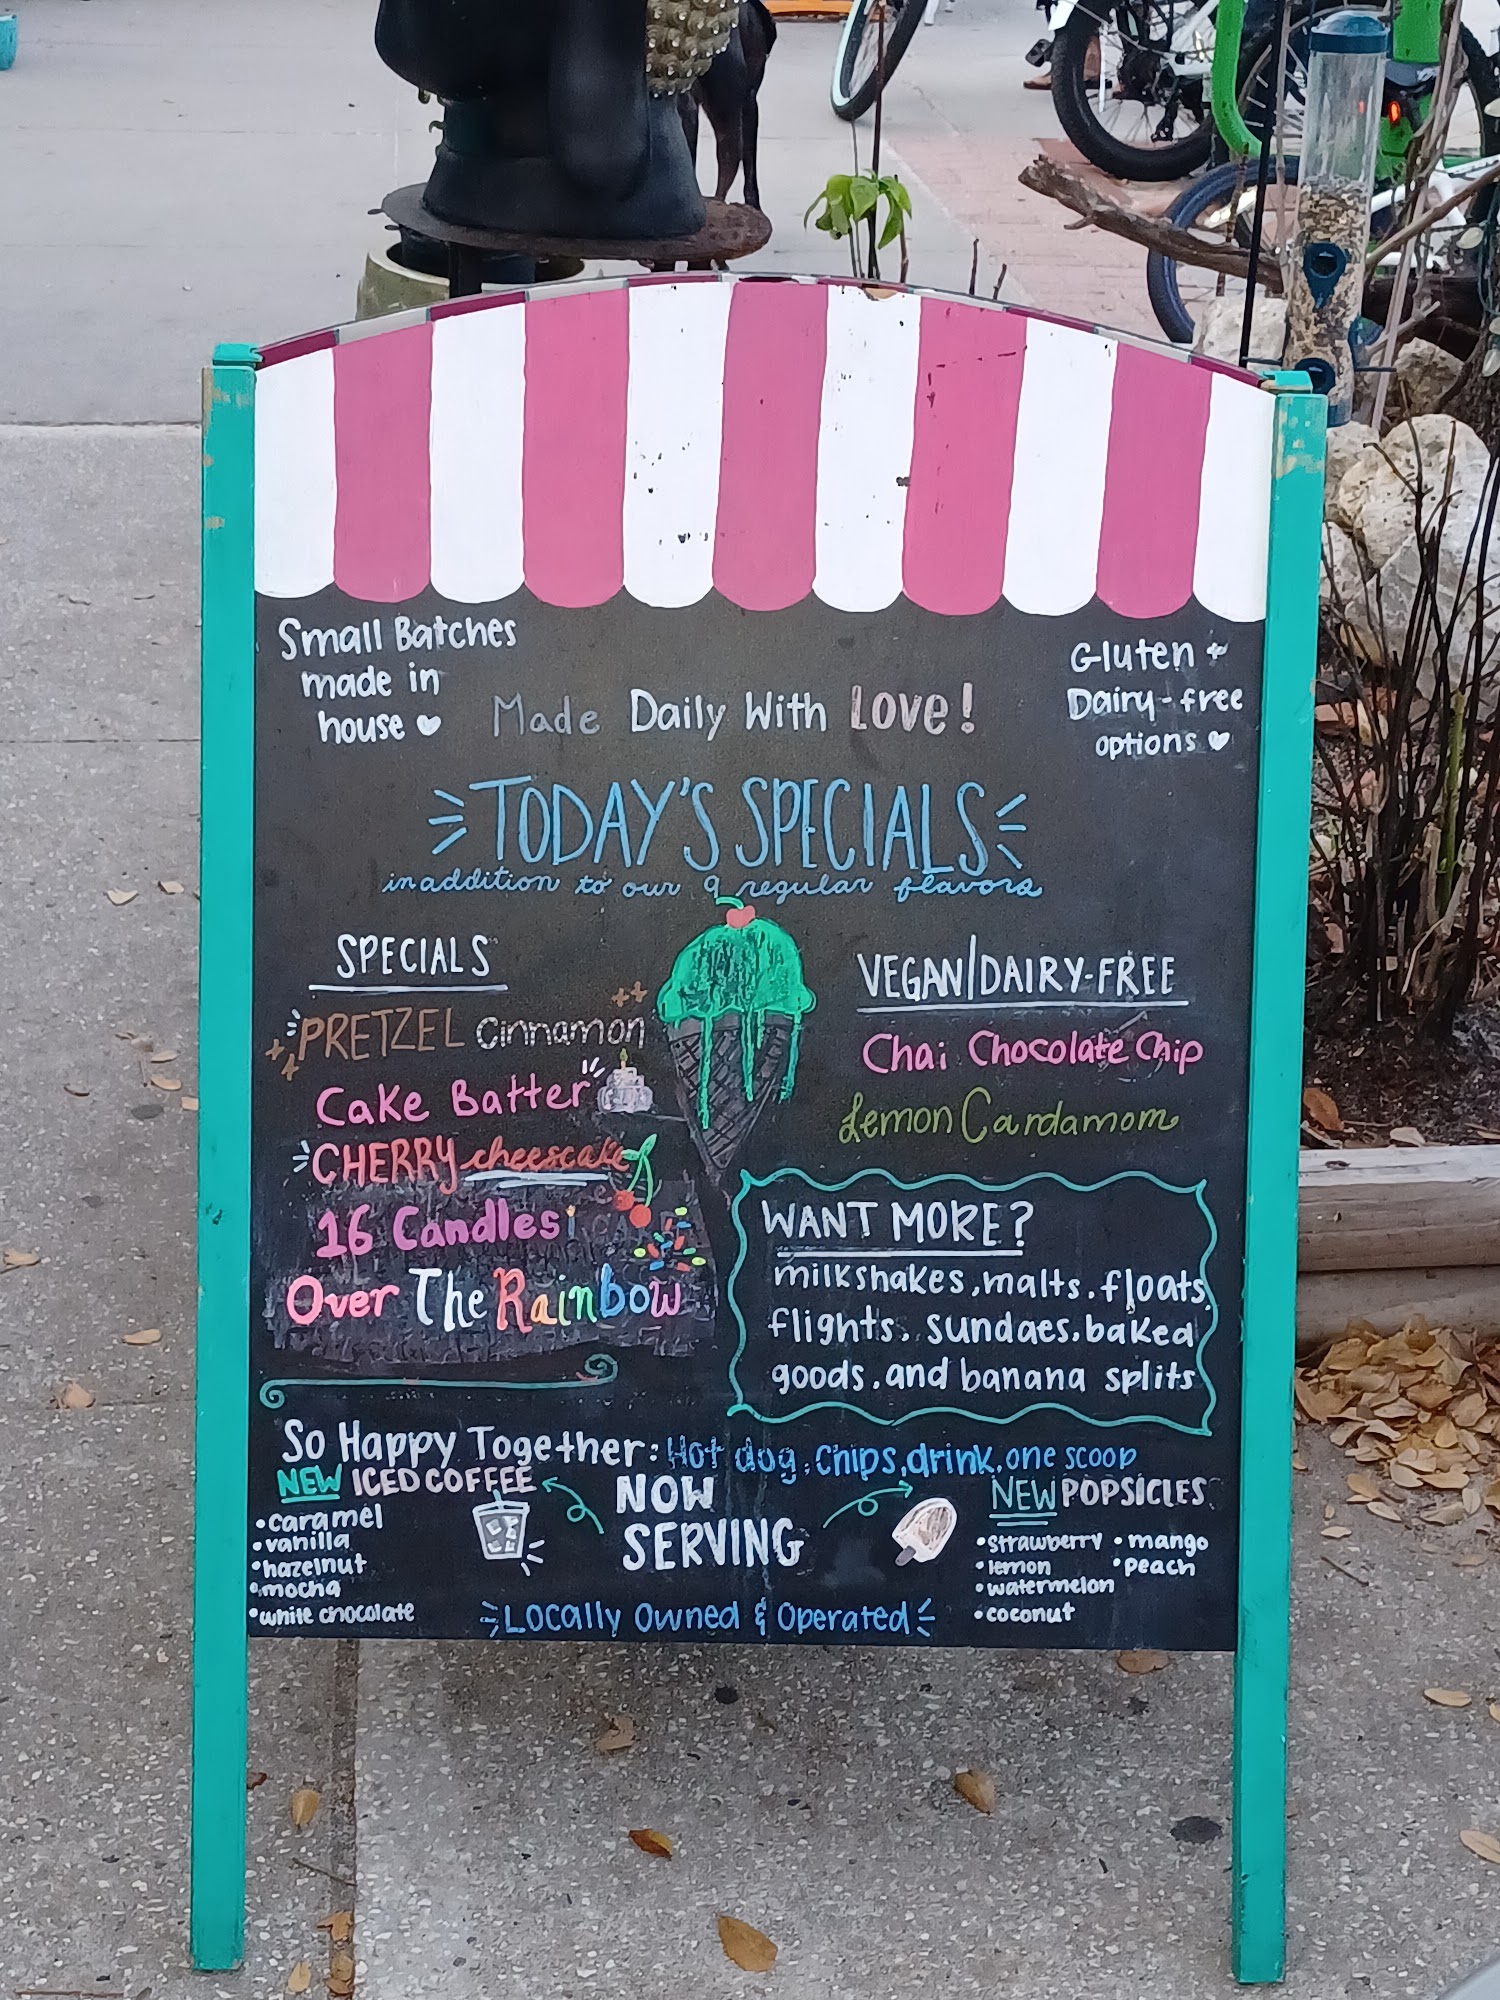 Small Batches
made in
house
Made Daily With Love!
Gluten +
Dairy-free
options
TODAY'S SPECIALS
in addition to our 9 regular flavors
SPECIALS
PRETZEL Cinnamon
Cake Batter
CHERRY cheesecake
16 Candles
Over The Rainbow
VEGAN/DAIRY-FREE
Chai Chocolate Chip
Lemon Cardamom
WANT MORE?
milkshakes, malts, floats,
flights, sundaes, baked
goods, and banana splits
So Happy Together: Hot dog, Chips, drink, one scoop
NEW ICED COFFEE
• caramel
• vanilla
• hazelnut
• mocha
• white chocolate
NOW
SERVING
NEW POPSICLES
• strawberry • mango
• lemon • peach
• watermelon
• coconut
Locally Owned & Operated